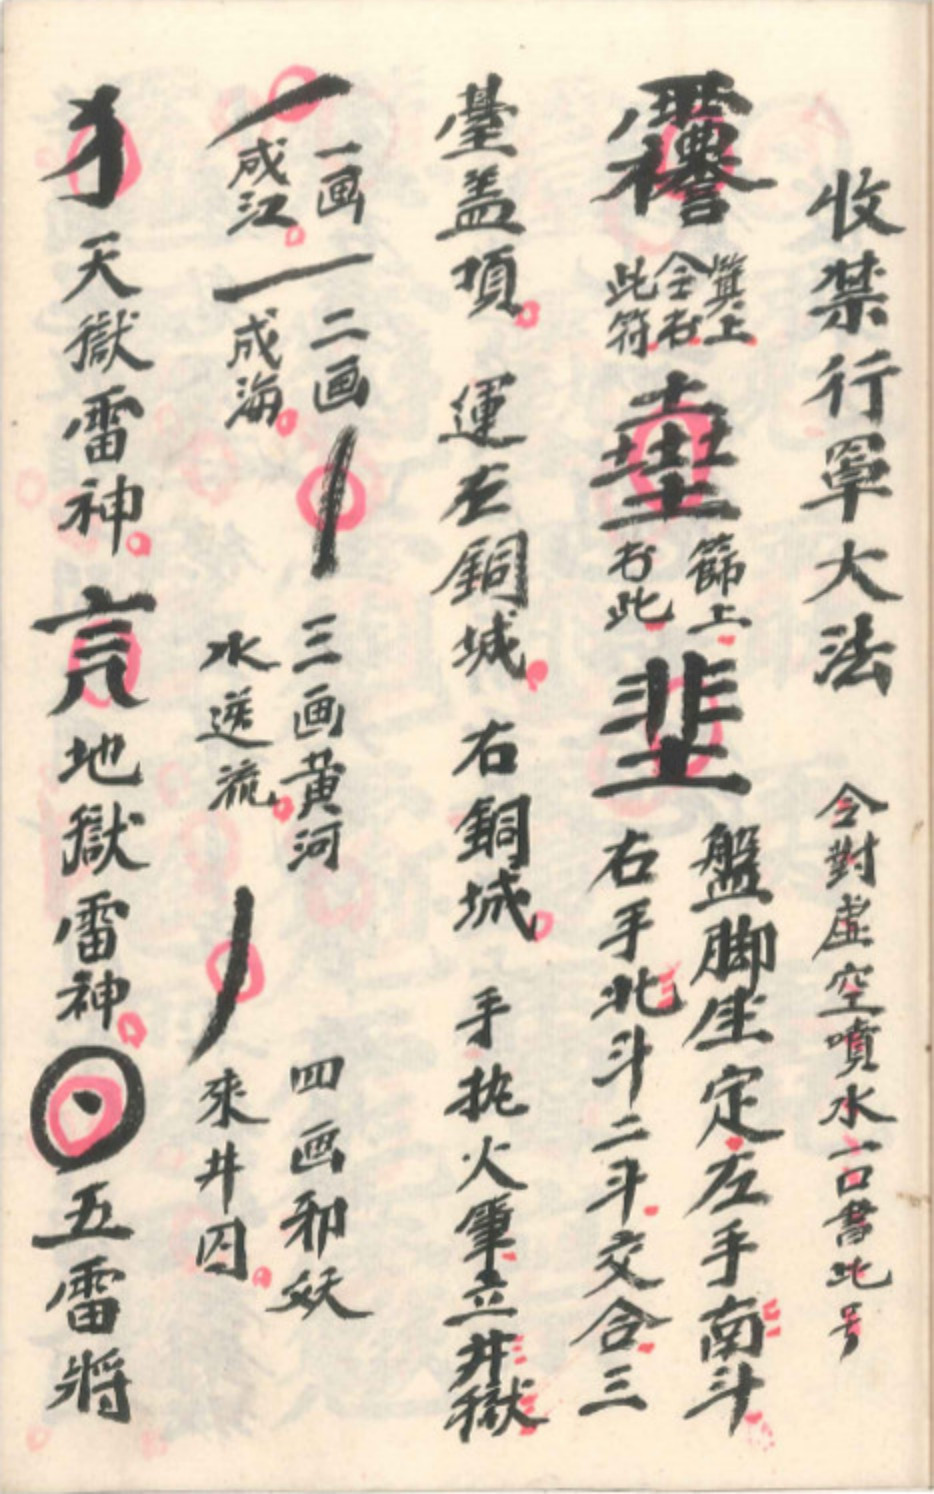 收禁行罩大法 令對虛空噴水一口書此号
箕上
令右
此符
篩上
右此
盤脚坐定左手南斗
右手北斗二斗交合三
臺盖項 運左銅城 右銅城 手执火筆立井獄
一画
成江
二画
成海
三画黃河
水逆流
四画邪妖
來井囚
天獄雷神 地獄雷神 五雷將